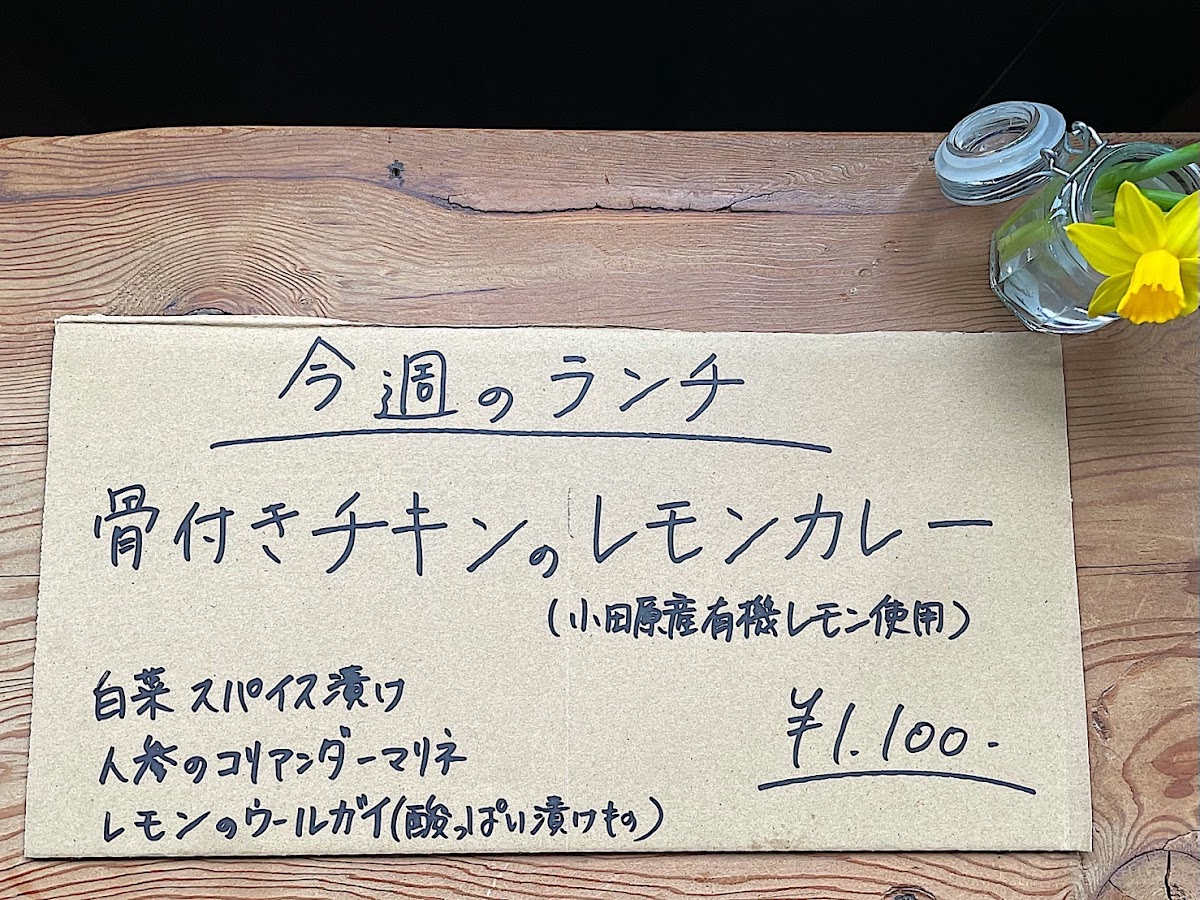 今週のランチ
骨付きチキンのレモンカレー
(小田原産有機レモン使用)
白菜 スパイス漬け
人参のコリアンダーマリネ
レモンのウールガイ(酸っぱい漬けもの)
¥1.100.-